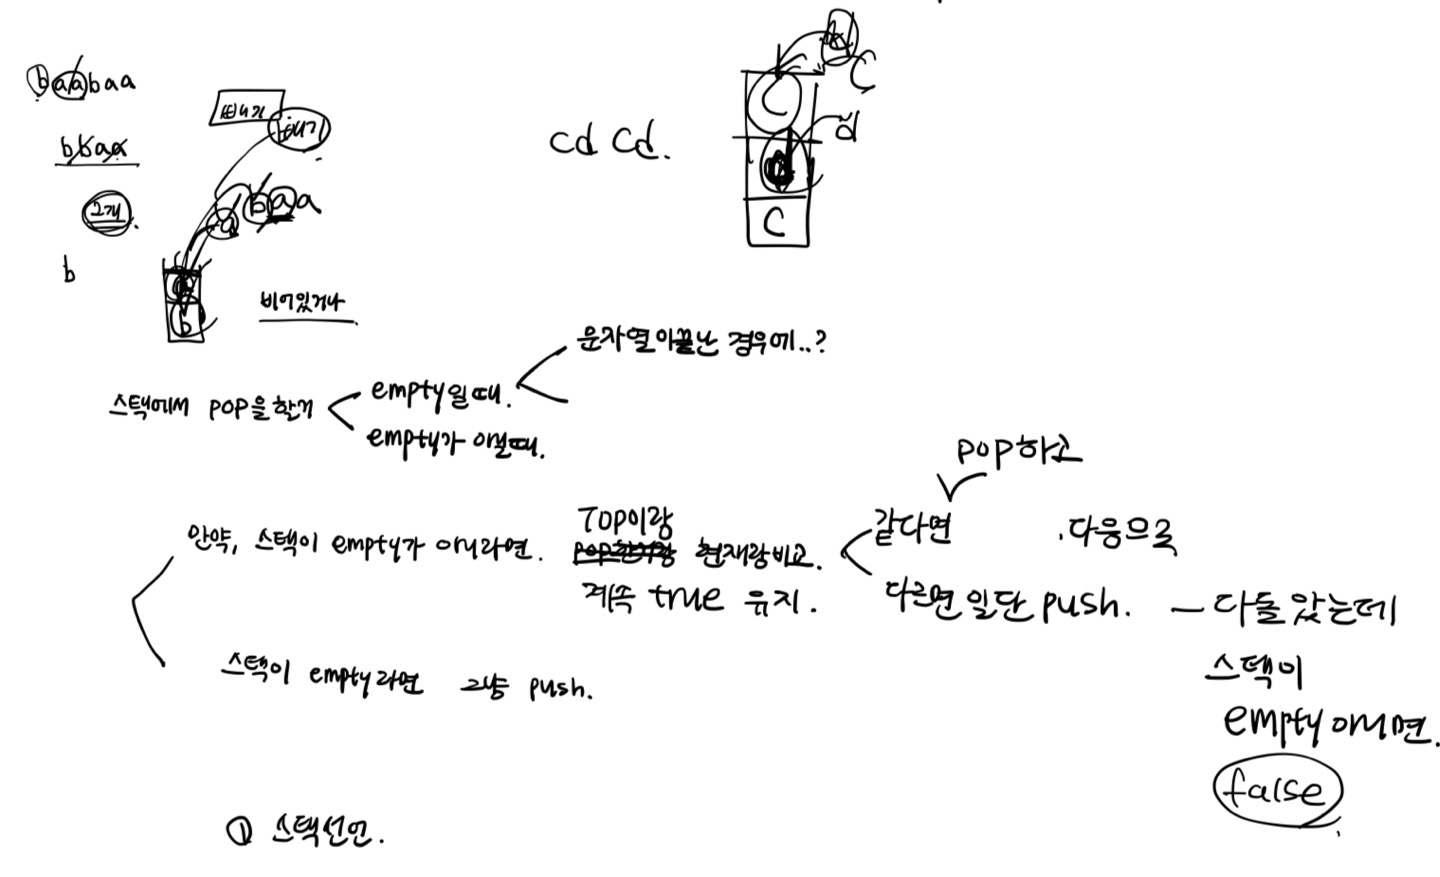 baabaa
bbaa
2개.
b
빼내기
빼내기
a baa
a
b
비어있거나
cd cd.
d
C
C
d
C
스택에서 pop을 할거
empty일때.
empty가 아닐때.
문자열이끝난 경우에..?
만약, 스택이 empty가 아니라면.
TOP이랑
현재랑비교.
계속 true 유지.
같다면
pop하고
.다음으로
다르면일단 push.
- 다돌았는데
스택이
empty아니면.
false
스택이 empty라면 그냥 push.
① 스택선언.